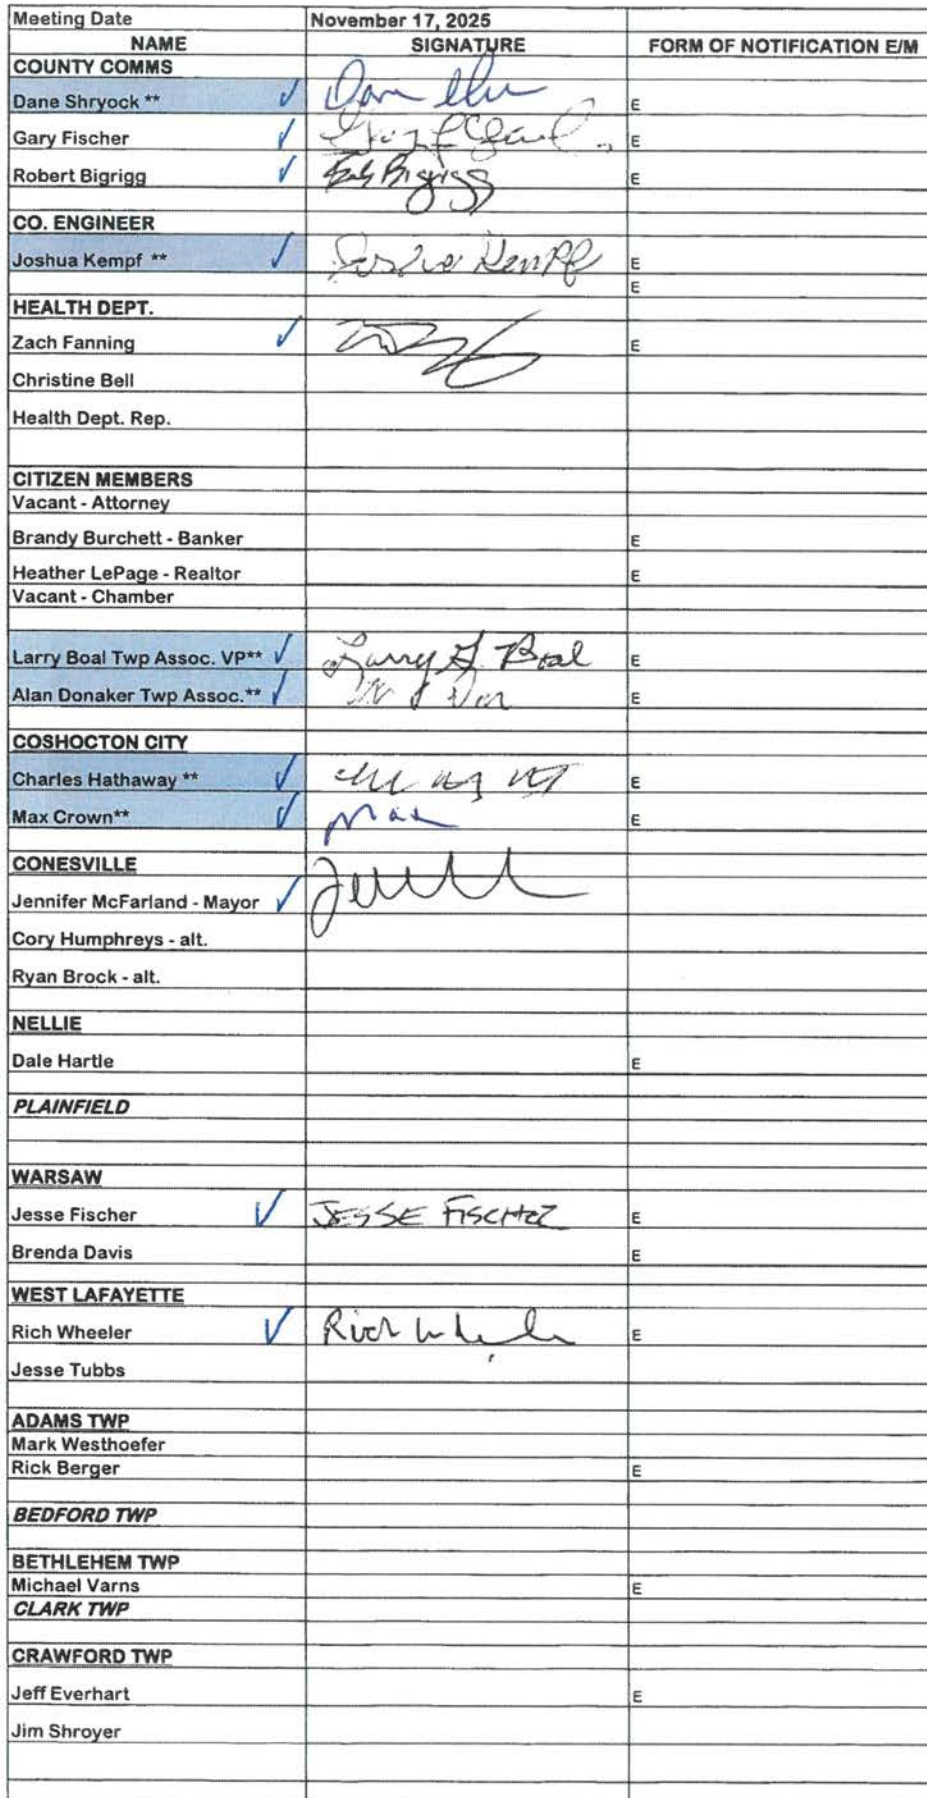 Meeting Date November 17, 2025
NAME SIGNATURE FORM OF NOTIFICATION E/M
COUNTY COMMS
Dane Shryock ** ✓ E
Gary Fischer ✓ E
Robert Bigrigg ✓ Bigrigg E
CO. ENGINEER
Joshua Kempf ** ✓ Kempf E
E
HEALTH DEPT.
Zach Fanning ✓ E
Christine Bell
Health Dept. Rep.
CITIZEN MEMBERS
Vacant - Attorney
Brandy Burchett - Banker E
Heather LePage - Realtor E
Vacant - Chamber
Larry Boal Twp Assoc. VP** ✓ Larry Boal E
Alan Donaker Twp Assoc.** ✓ E
COSHOCTON CITY
Charles Hathaway ** ✓ E
Max Crown** ✓ Max E
CONESVILLE
Jennifer McFarland - Mayor ✓
Cory Humphreys - alt.
Ryan Brock - alt.
NELLIE
Dale Hartle E
PLAINFIELD
WARSAW
Jesse Fischer ✓ JESSE FISCHER E
Brenda Davis E
WEST LAFAYETTE
Rich Wheeler ✓ Rich Wheeler E
Jesse Tubbs
ADAMS TWP
Mark Westhoefer
Rick Berger E
BEDFORD TWP
BETHLEHEM TWP
Michael Varns E
CLARK TWP
CRAWFORD TWP
Jeff Everhart E
Jim Shroyer